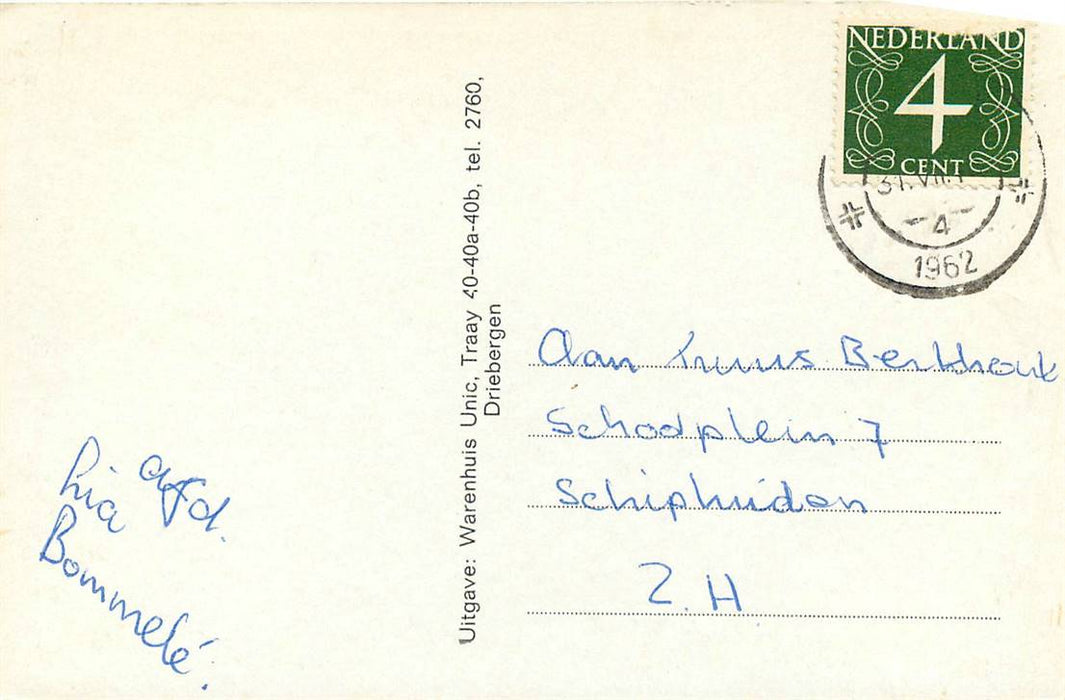 NEDERLAND
4
CENT
31.VII.
4
1962
Uitgave: Warenhuis Unic, Traay 40-40a-40b, tel. 2760,
Driebergen
Aan Truus Berkhout
Schoolplein 7
Schipluiden
Z.H
afd.
Lia
Bommelé.